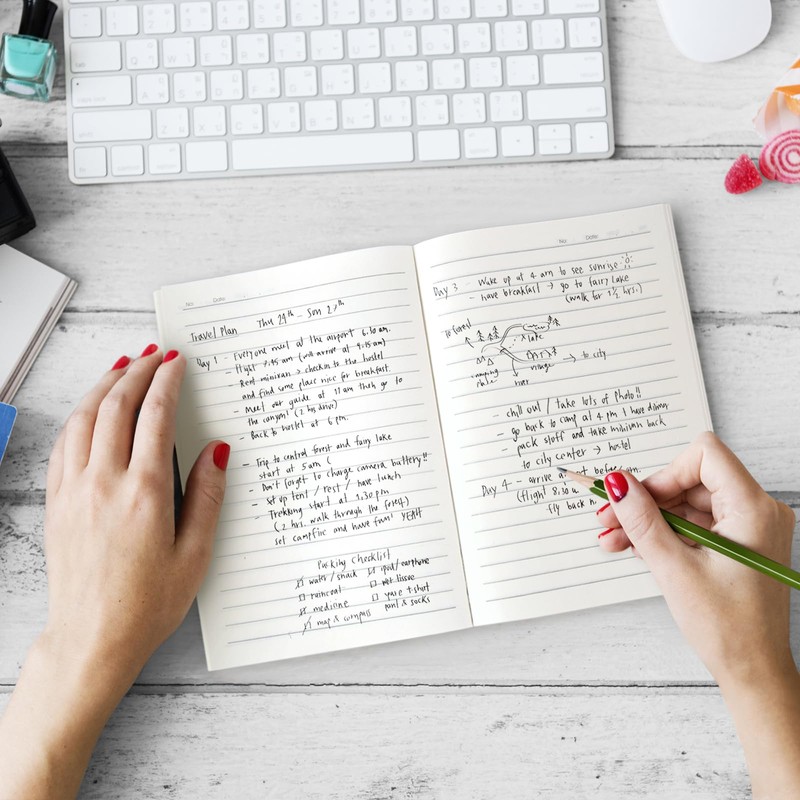 No.
Date
Travel Plan Thu 24th - Sun 27th
Day 1 - Everyone meet at the airport 6.10 am.
- flight 7.45 am (will arrive at 9.15 am)
- Rent minivan → check in to the hostel
and find some place nice for breakfast
- Meet our guide at 11 am then go to
the canyon! (2 hrs drive)
- Back to hostel at 6 pm.
- Trip to central forest and fairy lake
start at 5am (
- Don't forget to charge camera battery!!
- Set up tent / rest / have lunch
- Trekking start at 1.30 pm
(2 hrs. walk through the forest)
set campfire and have fun! YEAH
Packing Checklist
water / snack
raincoat
medicine
map & compass
ipod / earphone
wet tissue
spare t-shirt
pant & socks
No.
Date
Day 3 - Wake up at 4 am to see sunrise
- have breakfast → go to fairy lake
(walk for 1 1/2 hrs.)
to forest
lake
camping
place
village
river
→ to city
- chill out / take lots of photo!!
- go back to camp at 4 pm / have dinner
- pack stuff and take minivan back
to city center → hostel
Day 4 - arrive
(flight 8.30
fly back